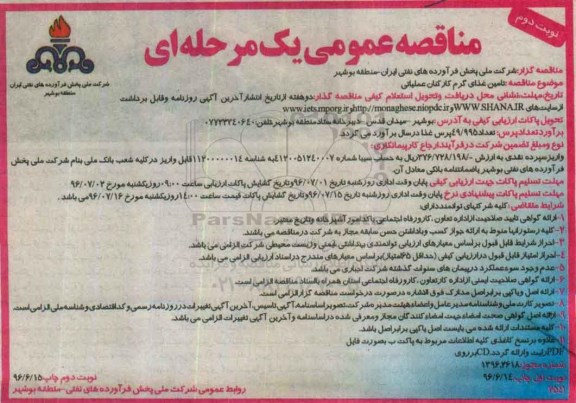 نوبت دوم
مناقصه عمومی یک مرحله ای
شرکت ملی پخش فرآورده های نفتی ایران
منطقه بوشهر
مناقصه گزار: شرکت ملی پخش فرآورده های نفتی ایران-منطقه بوشهر
موضوع مناقصه: تامین غذای گرم کارکنان عملیاتی
تاریخ، مهلت، نشانی محل دریافت وتحویل استعلام کیفی مناقصه گذار: دوهفته ازتاریخ انتشارآخرین آگهی روزنامه وقابل برداشت
ازسایت های WWW.SHANA.IR و http://monaghese.niopdc.ir و www.iets.mporg.ir
تحویل پاکات ارزیابی کیفی به آدرس: بوشهر-میدان قدس -دبیرخانه ستادمنطقه بوشهر تلفن: ۰۷۷۳۳۳۴۰۶۴۰
برآوردتعدادپرس: تعداد ۴۹/۹۹۵پرس غذا درسال برآورد می گردد.
نوع ومبلغ تضمین شرکت درفرآیندارجاع کارپیمانکاری:
واریزسپرده نقدی به ارزش -/۳۷۶/۷۲۸/۱۹۸ریال به حساب سیبا شماره ۴۱۲۰۰۵۱۲۴۰۰۷به شناسه ۱۱۲۰۰۰۰۰۰۱۴ قابل واریز در کلیه شعب بانک ملی بنام شرکت ملی پخش
فرآورده های نفتی بوشهر یاضمانتنامه بانکی معادل آن.
مهلت تسلیم پاکات جهت ارزیابی کیفی پایان وقت اداری روزشنبه تاریخ ۹۶/۰۷/۰۱ وتاریخ گشایش پاکات ارزیابی ساعت ۰۹:۰۰ روزیکشنبه مورخ ۹۶/۰۷/۰۲
مهلت تسلیم پاکات پیشنهادی نرخ پایان وقت اداری روزشنبه تاریخ ۹۶/۰۷/۱۵ وتاریخ گشایش پاکات قیمت ساعت ۱۴:۰۰ روزیکشنبه مورخ ۹۶/۰۷/۱۶ می باشد.
شرایط متقاضی: کلیه شرکتهای توانمنددارای:
۱-ارائه گواهی تایید صلاحیت ازاداره تعاون ،کارورفاه اجتماعی باکدامور آشپزخانه وتاریخ معتبر.
۲-کلیه رستورانها منوط به ارائه جواز کسب وباداشتن حسن سابقه مجاز به شرکت درمناقصه می باشند.
۳-احراز شرایط قابل قبول براساس معیارهای ارزیابی توانمندی بهداشتی، ایمنی وزیست محیطی شرکت الزامی می باشد.
۴-احراز امتیاز قابل قبول درارزیابی کیفی (حداقل ۶۵امتیاز)براساس معیارهای مندرج دراسناد ارزیابی الزامی می باشد.
۵-عدم وجود سوءعملکرد درپیمان های سنوات گذشته شرکت اجباری می باشد.
۶-ارائه گواهی صلاحیت ایمنی ازاداره کاروتعاون ،کارورفاه اجتماعی استان همراه بااسناد مناقصه الزامی است.
۷-ارائه اصل ویاکپی برابراصل مدارک فوق الاشاره درصورت درخواست مناقصه گزارالزامی است.
۸-تصویر کارت ملی وشناسنامه مدیرعامل واعضاء هیئت مدیره شرکت، تصویراساسنامه، آگهی تاسیس، آخرین آگهی تغییرات درروزنامه رسمی وکداقتصادی وشناسه ملی الزامی است.
۹-ارائه اصل گواهی صحت امضاء جهت امضاء کنندگان مجاز ومعرفی شده دراساسنامه وآخرین آگهی تغییرات الزامی می باشد.
۱۰-کلیه مستندات ارائه شده می بایست اصل یاکپی برابراصل باشد.
۱۱-علاوه برنسخ کاغذی کلیه اطلاعات مربوط به پاکت ب بصورت فایل
PDF رایت وارائه گردد.CDبرروی
شماره مجوز: ۱۳۹۶.۲۶۱۸
نوبت اول چاپ: ۹۶/۶/۱۴
نوبت دوم چاپ: ۹۶/۶/۱۵
روابط عمومی شرکت ملی پخش فرآورده های نفتی-منطقه بوشهر